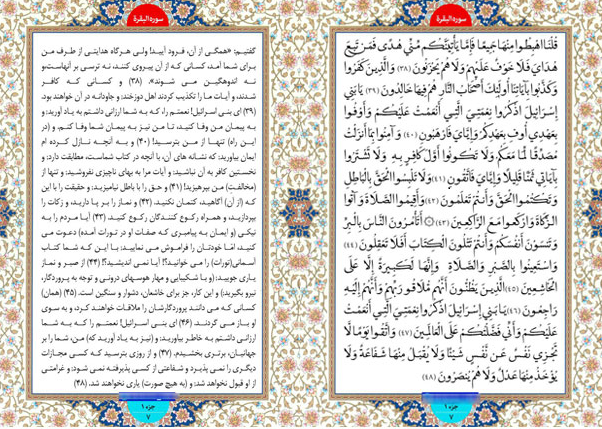 سوره البقرة
قُلْنَا اهْبِطُوا مِنْهَا جَمِيعًا فَإِمَّا يَأْتِيَنَّكُم مِّنِّي هُدًى فَمَن تَبِعَ
هُدَايَ فَلَا خَوْفٌ عَلَيْهِمْ وَلَا هُمْ يَحْزَنُونَ ﴿۳۸﴾ وَالَّذِينَ كَفَرُوا
وَكَذَّبُوا بِآيَاتِنَا أُولَٰئِكَ أَصْحَابُ النَّارِ هُمْ فِيهَا خَالِدُونَ ﴿۳۹﴾ يَا بَنِي
إِسْرَائِيلَ اذْكُرُوا نِعْمَتِيَ الَّتِي أَنْعَمْتُ عَلَيْكُمْ وَأَوْفُوا
بِعَهْدِي أُوفِ بِعَهْدِكُمْ وَإِيَّايَ فَارْهَبُونِ ﴿۴۰﴾ وَآمِنُوا بِمَا أَنزَلْتُ
مُصَدِّقًا لِّمَا مَعَكُمْ وَلَا تَكُونُوا أَوَّلَ كَافِرٍ بِهِ وَلَا تَشْتَرُوا
بِآيَاتِي ثَمَنًا قَلِيلًا وَإِيَّايَ فَاتَّقُونِ ﴿۴۱﴾ وَلَا تَلْبِسُوا الْحَقَّ بِالْبَاطِلِ
وَتَكْتُمُوا الْحَقَّ وَأَنتُمْ تَعْلَمُونَ ﴿۴۲﴾ وَأَقِيمُوا الصَّلَاةَ وَآتُوا
الزَّكَاةَ وَارْكَعُوا مَعَ الرَّاكِعِينَ ﴿۴۳﴾ ۞ أَتَأْمُرُونَ النَّاسَ بِالْبِرِّ
وَتَنسَوْنَ أَنفُسَكُمْ وَأَنتُمْ تَتْلُونَ الْكِتَابَ أَفَلَا تَعْقِلُونَ ﴿۴۴﴾
وَاسْتَعِينُوا بِالصَّبْرِ وَالصَّلَاةِ وَإِنَّهَا لَكَبِيرَةٌ إِلَّا عَلَى
الْخَاشِعِينَ ﴿۴۵﴾ الَّذِينَ يَظُنُّونَ أَنَّهُم مُّلَاقُو رَبِّهِمْ وَأَنَّهُمْ إِلَيْهِ
رَاجِعُونَ ﴿۴۶﴾ يَا بَنِي إِسْرَائِيلَ اذْكُرُوا نِعْمَتِيَ الَّتِي أَنْعَمْتُ
عَلَيْكُمْ وَأَنِّي فَضَّلْتُكُمْ عَلَى الْعَالَمِينَ ﴿۴۷﴾ وَاتَّقُوا يَوْمًا لَّا
تَجْزِي نَفْسٌ عَن نَّفْسٍ شَيْئًا وَلَا يُقْبَلُ مِنْهَا شَفَاعَةٌ وَلَا
يُؤْخَذُ مِنْهَا عَدْلٌ وَلَا هُمْ يُنصَرُونَ ﴿۴۸﴾
جزء ۱
۷
سوره البقرة
گفتیم: «همگی از آن، فرود آیید! ولی هرگاه هدایتی از طرف من
برای شما آمد، کسانی که از آن پیروی کنند، نه ترسی بر آنهاست،و
نه اندوهگین می شوند». (۳۸) و کسانی که کافر
شدند، و آیات ما را تکذیب کردند اهل دوزخند؛ و جاودانه در آن خواهند بود.
(۳۹) ای بنی اسرائیل! نعمتم را، که به شما ارزانی داشتم به یاد آورید؛ و
به پیمان من وفا کنید، تا من نیز به پیمان شما وفا کنم. و (در
این راه) تنها از من بترسید! (۴۰) و به آنچه نازل کرده ام
ایمان بیاورید، که نشانه های آن، با آنچه در کتاب شماست، مطابقت دارد؛ و
نخستین کافر به آن نباشید؛ و آیات مرا به بهای ناچیزی نفروشید؛ و تنها از
(مخالفتِ) من بپرهیزید! (۴۱) و حق را با باطل نیامیزید، و حقیقت را با این
که (از آن) آگاهید، کتمان نکنید. (۴۲) و نماز را بر پا دارید، و زکات را
بپردازید، و همراه رکوع کنندگان رکوع کنید. (۴۳) آیا مردم را به
نیکی (و ایمان به پیامبری که صفات او در تورات آمده) دعوت می
کنید، امّا خودتان را فراموش می نمایید; با این که شما کتاب
آسمانی(تورات) را می خوانید؟! آیا نمی اندیشید؟! (۴۴) از صبر و نماز
یاری جویید; (و با شکیبایی و مهار هوسهای درونی و توجه به پروردگار،
نیرو بگیرید;) و این کار، جز برای خاشعان، دشوار و سنگین است. (۴۵) (همان)
کسانی که می دانند پروردگارشان را ملاقات خواهند کرد، و به سوی
او باز می گردند. (۴۶) ای بنی اسرائیل! نعمتم را که به شما
ارزانی داشتم به خاطر بیاورید; و (نیز به یاد آورید که) من، شما را بر
جهانیان، برتری بخشیدم. (۴۷) و از روزی بترسید که کسی مجازات
دیگری را نمی پذیرد و شفاعتی از کسی پذیرفته نمی شود; و غرامتی
از او قبول نخواهد شد; و (به هیچ صورت) یاری نخواهند شد. (۴۸)
جزء ۱
۷